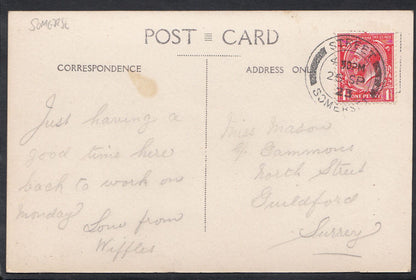 SOMERSE
POST CARD
CORRESPONDENCE
ADDRESS ONLY
STREET
4. 10 PM
25 SP
23
SOMERSET
ONE PENNY
Just having a
good time here
back to work on
Monday Love from
Wiffles
Miss Mason
c/o Cammons
North Street
Guildford
Surrey